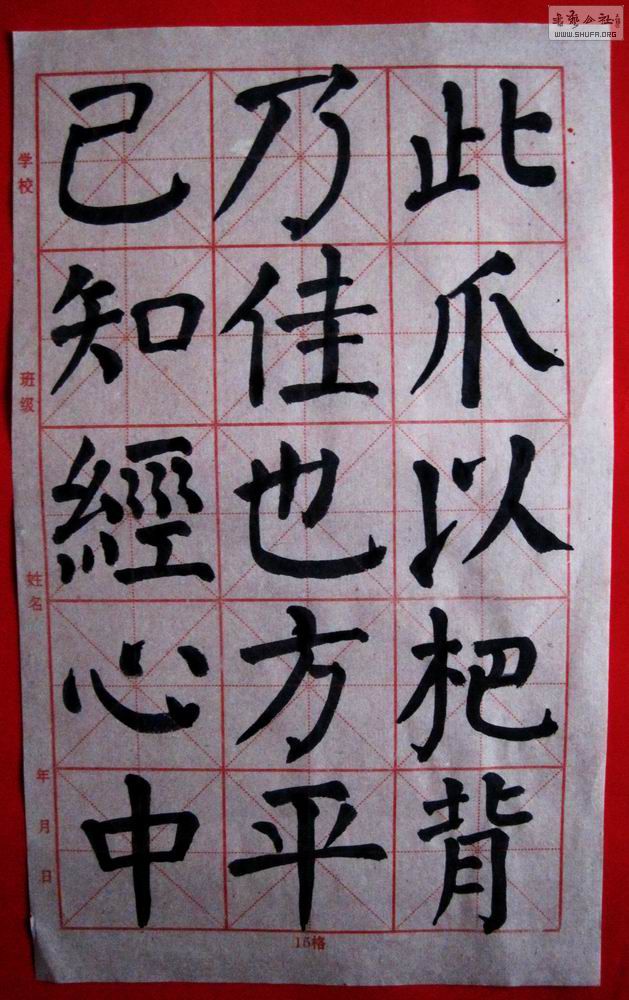 此爪以杷背
乃佳也方平
已知經心中
学校
班级
姓名
年月日
15格
书艺公社
WWW.SHUFA.ORG